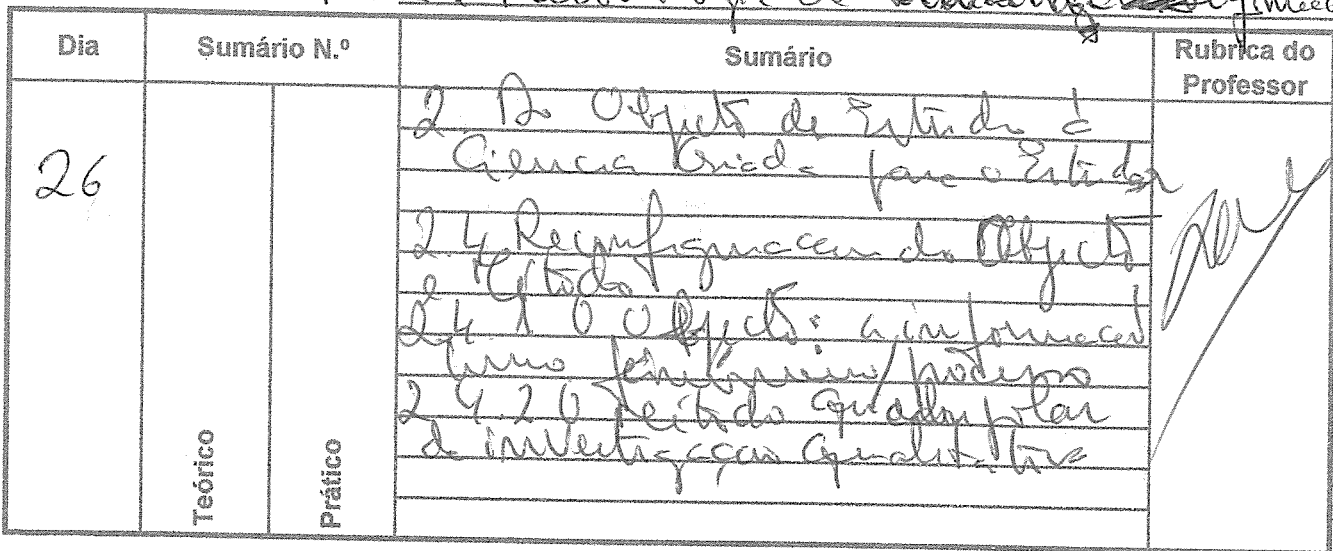 Dia
Sumário N.º
Sumário
Rubrica do
Professor
26
Teórico
Prático
2 Do Objecto de Estudo à
Ciência Criada para o Estudar
2.4 Reconfiguracao do Objecto
e Método
2.4.1 O Objecto: a informacao
como fenómeno/processo
2.4.2 O Método quadripolar
de investigação qualitativa